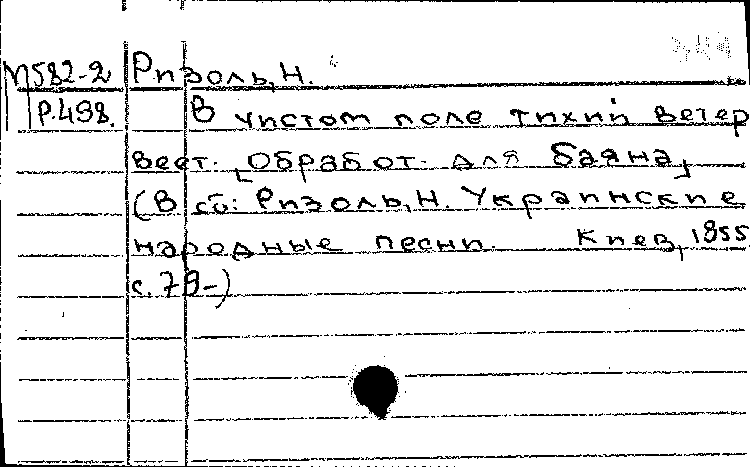 М582-2 Ризоль, Н.
Р.498. В чистом поле тихий ветер
веет. [Обработ. для баяна]
(В сб: Ризоль, Н. Украинские
народные песни. Киев, 1955
с. 79-)